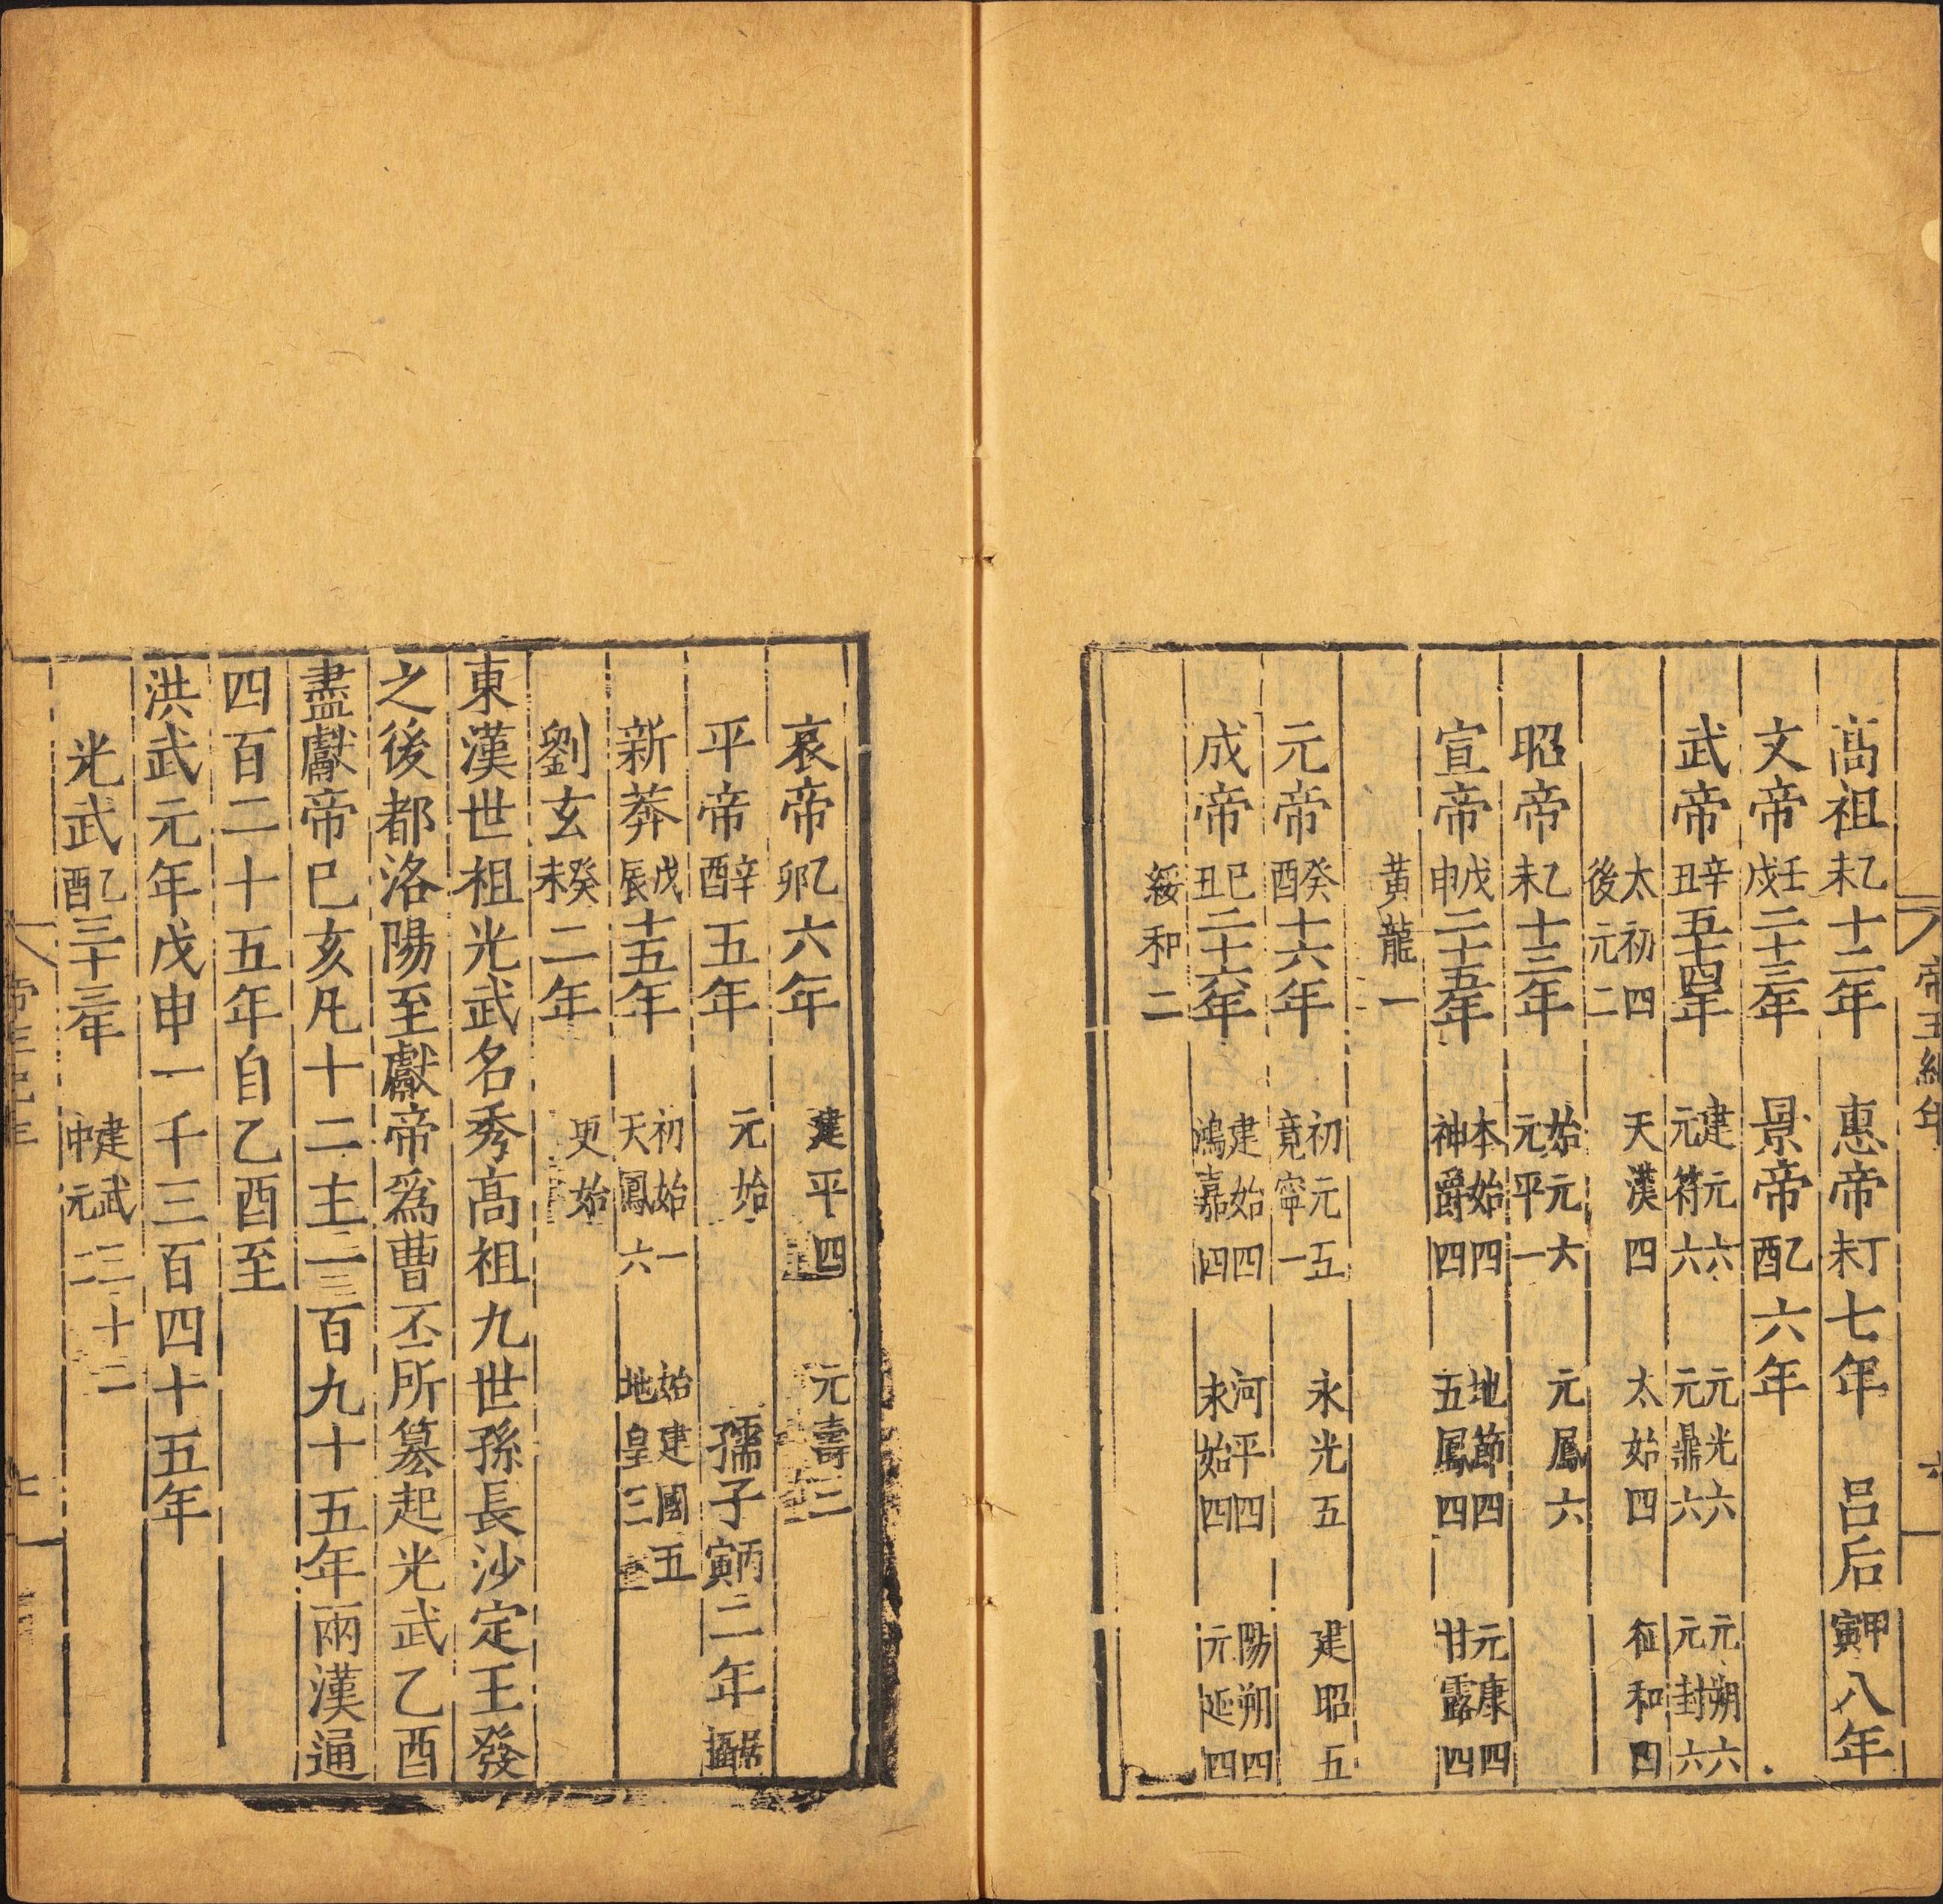 帝王紀年 六
高祖乙未十二年 惠帝丁未七年 呂后甲寅八年
文帝壬戌二十三年 景帝乙酉六年
武帝辛丑五十四年 建元六 元光六 元朔六 元符六 元鼎六 元封六
太初四 天漢四 太始四 征和四 後元二
昭帝乙未十三年 始元六 元鳳六 元平一
宣帝戊申二十五年 本始四 地節四 元康四 神爵四 五鳳四 甘露四
黃龍一
元帝癸酉十六年 初元五 永光五 建昭五 竟寧一
成帝己丑二十六年 建始四 河平四 陽朔四 鴻嘉四 永始四 元延四
綏和二
哀帝乙卯六年 建平四 元壽二
平帝辛酉五年 元始 孺子丙寅二年居攝
新莽戊辰十五年 初始一 始建國五 天鳳六 地皇三
劉玄癸未二年 更始
東漢世祖光武名秀高祖九世孫長沙定王發
之後都洛陽至獻帝爲曹丕所篡起光武乙酉
盡獻帝巳亥凡十二主一百九十五年兩漢通
四百二十五年自乙酉至
洪武元年戊申一千三百四十五年
光武乙酉三十三年 建武三十二 中元二
帝王紀年 七